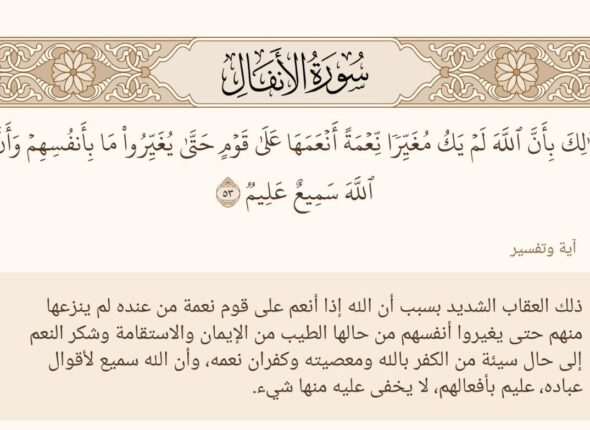 سُورَةُ الأَنفَالِ
لِكَ بِأَنَّ ٱللَّهَ لَمۡ يَكُ مُغَيِّرٗا نِّعۡمَةً أَنۡعَمَهَا عَلَىٰ قَوۡمٍ حَتَّىٰ يُغَيِّرُواْ مَا بِأَنفُسِهِمۡ وَأَنَّ
ٱللَّهَ سَمِيعٌ عَلِيمٞ ٥٣
آية وتفسير
ذلك العقاب الشديد بسبب أن الله إذا أنعم على قوم نعمة من عنده لم ينزعها
منهم حتى يغيروا أنفسهم من حالها الطيب من الإيمان والاستقامة وشكر النعم
إلى حال سيئة من الكفر بالله ومعصيته وكفران نعمه، وأن الله سميع لأقوال
عباده، عليم بأفعالهم، لا يخفى عليه منها شيء.